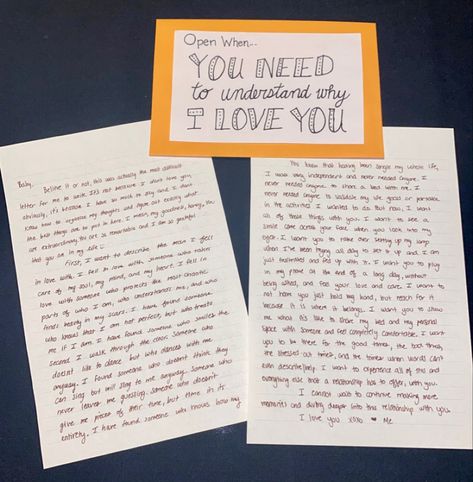 Open When...
YOU NEED
to understand why
I LOVE YOU
Baby,
Believe it or not, this was actually the most difficult
letter for me to write. It's not because I don't love you,
obviously, it's because I have so much to say and I don't
know how to organize my thoughts and figure out exactly what
the best things are to put in here. I mean, my goodness, honey, you
are extraordinary. You are so remarkable and I am so grateful
that you are in my life
First, I want to describe the man I fell
in love with. I fell in love with someone who takes
care of my soul, my mind, and my heart. I fell in
love with someone who protects the most chaotic
parts of who I am, who understands me, and who
finds beauty in my scars. I have found someone
who knows that I am not perfect, but who treats
me if I am. I have found someone who smiles the
second I walk through the door. Someone who
doesn't like to dance but who dances with me
anyway. I found someone who doesn't think they
can sing but will sing to me anyway. Someone who
never leaves me guessing. Someone who doesn't
give me pieces of their time, but gives me its
entirety. I have found someone who knows how my
You know that having been single my whole life,
I was very independent and never needed anyone. I
never needed anyone to share a bed with me. I
never needed anyone to validate my life goals or partake
in the activities I wanted to do. But now, I want
all of those things with you. I want to see a
smile come across your face when you look into my
eyes. I want you to take over setting up my lamp
when I've been trying all day to set it up and I am
just frustrated and fed up with it. I want you to plug
in my phone at the end of a long day, without
being asked, and feel your love and care. I want to
not have you just hold my hand, but reach for it
because it is where it belongs. I want you to show
me what it's like to share my bed and my personal
space with someone and feel completely comfortable. I want
you to be there for the good times, the bad times,
the stressed out times, and the times when words can't
even describe/help. I want to experience all of this and
everything else that a relationship has to offer, with you.
I cannot wait to continue making more
memories and diving deeper into this relationship with you.
I love you. XOXO ♥ Me